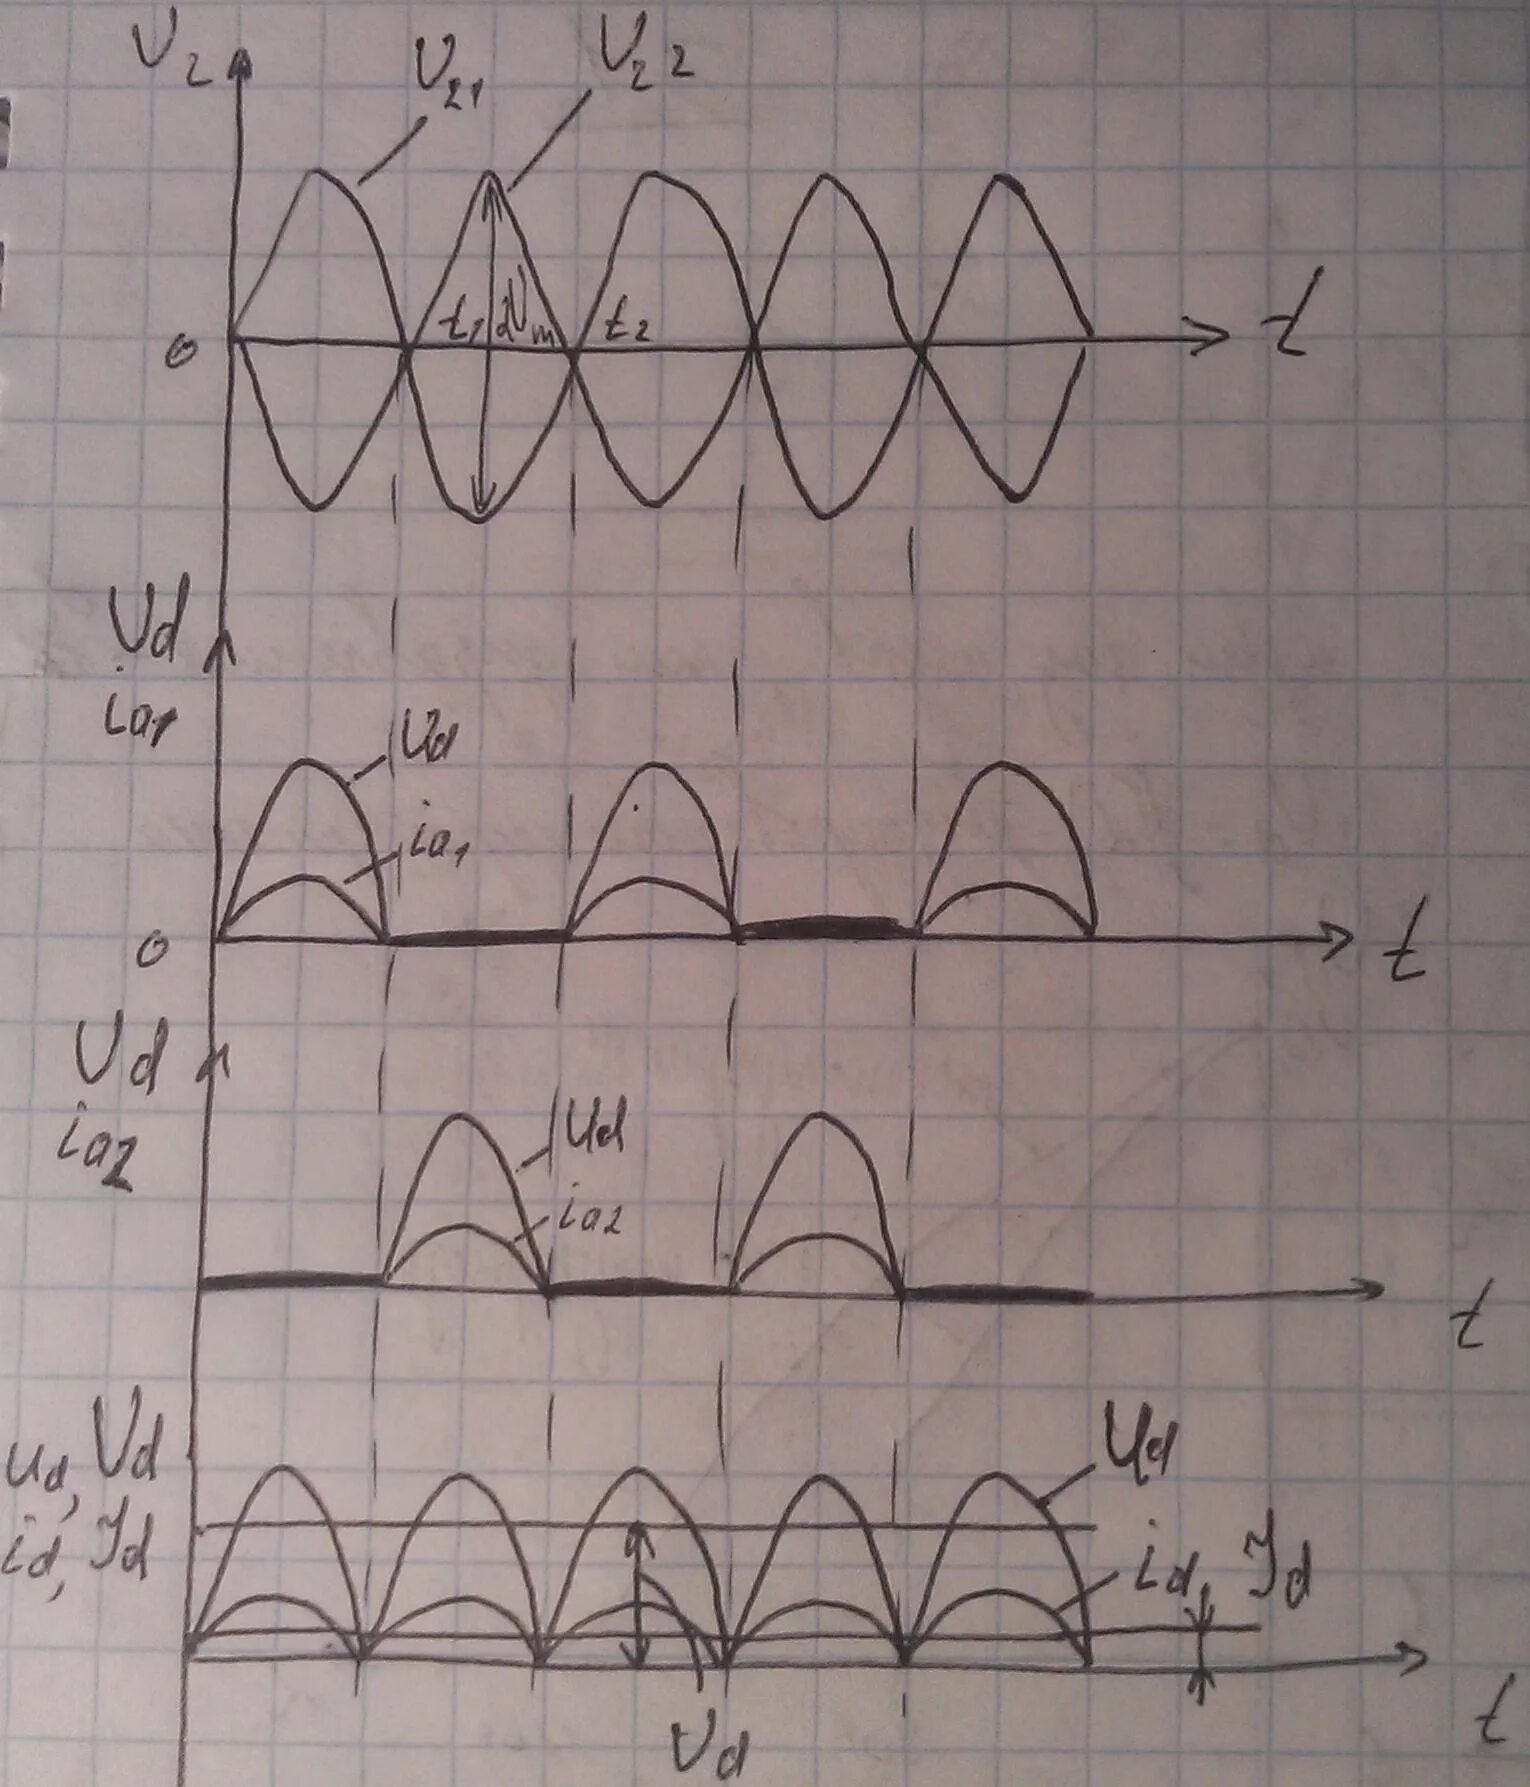 U₂ U₂₁ U₂₂
t₁ 2Uₘ t₂
0 t
Ud
ia₁
Ud
ia₁
0 t
Ud
ia2
Ud
ia2
t
Ud
ud, Ud
id, Id
id, Id
t
Ud